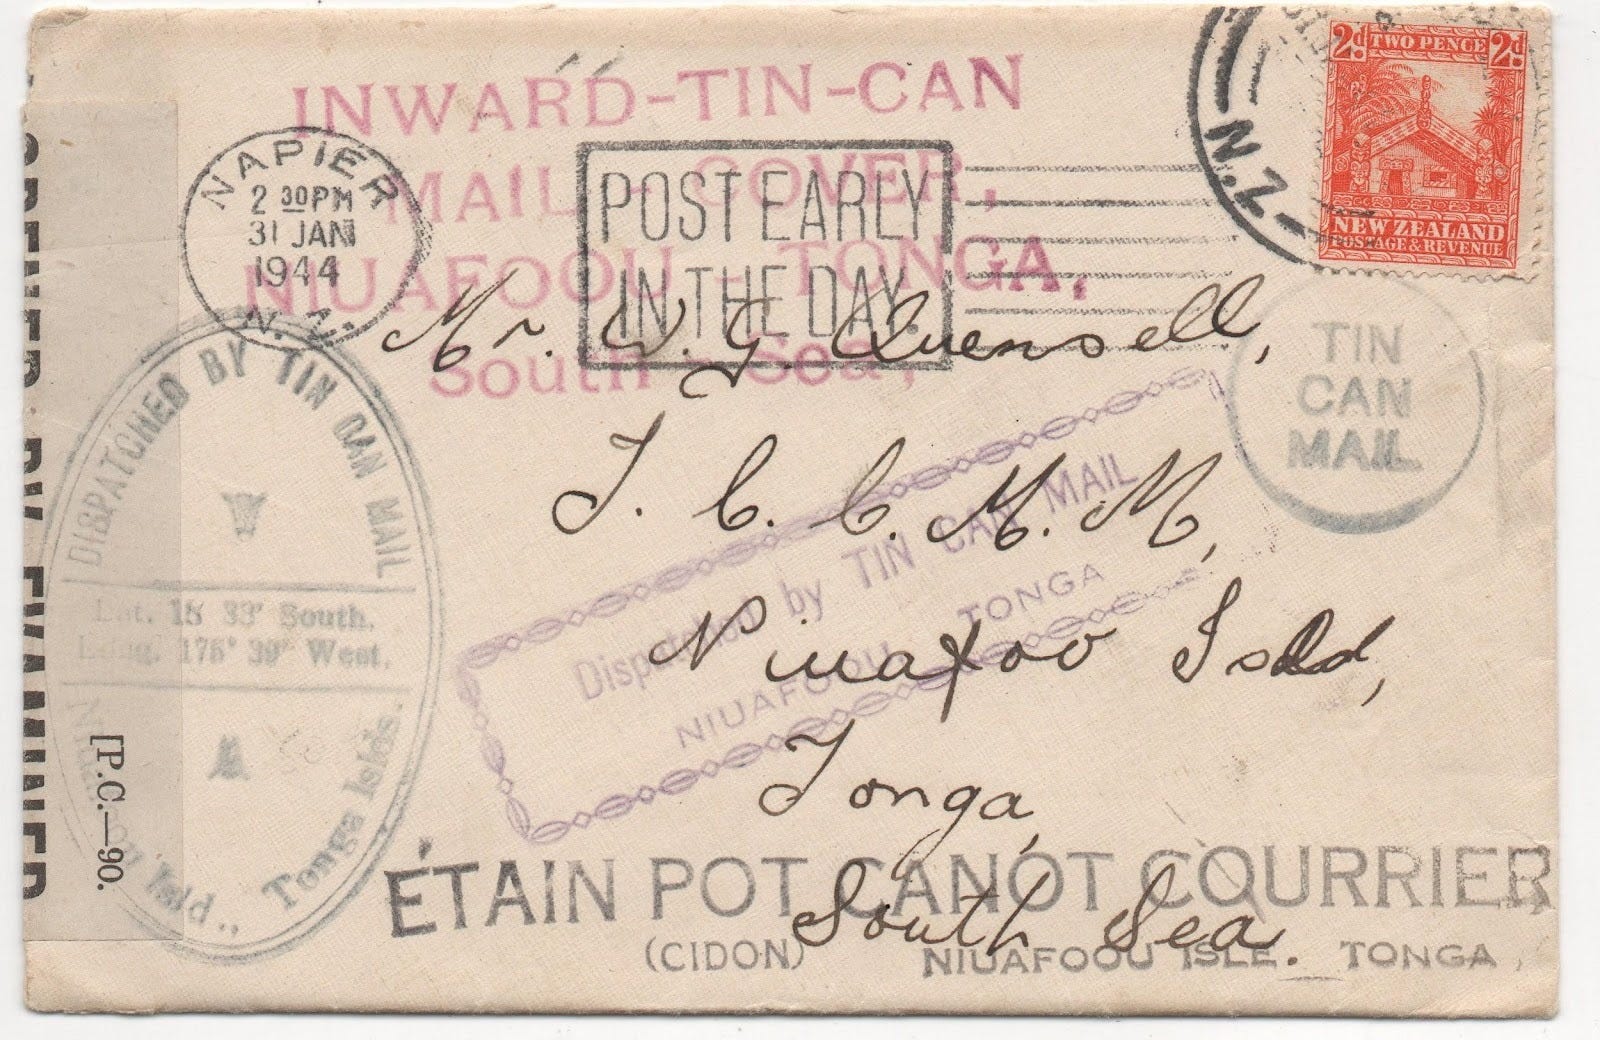 INWARD-TIN-CAN
MAIL - COVER,
NIUAFOOU - TONGA,
South - Sea,
NAPIER
2 30PM
31 JAN
1944
N.Z.
POST EARLY
IN THE DAY.
N.Z.
2d TWO PENCE 2d
NEW ZEALAND
POSTAGE & REVENUE
TIN
CAN
MAIL
Mr. W. G Quensell,
T. C. C. M. M,
Niuafoo Isld,
Tonga,
South Sea.
DISPATCHED BY TIN CAN MAIL
Lat. 15 33' South.
Long. 175° 39' West.
Isld., Tonga Islds.
Dispatched by TIN CAN MAIL
NIUAFOOU TONGA
ÉTAIN POT CANOT COURRIER
(CIDON) NIUAFOOU ISLE. TONGA,
OPENED BY EXAMINER
[P.C.—90.